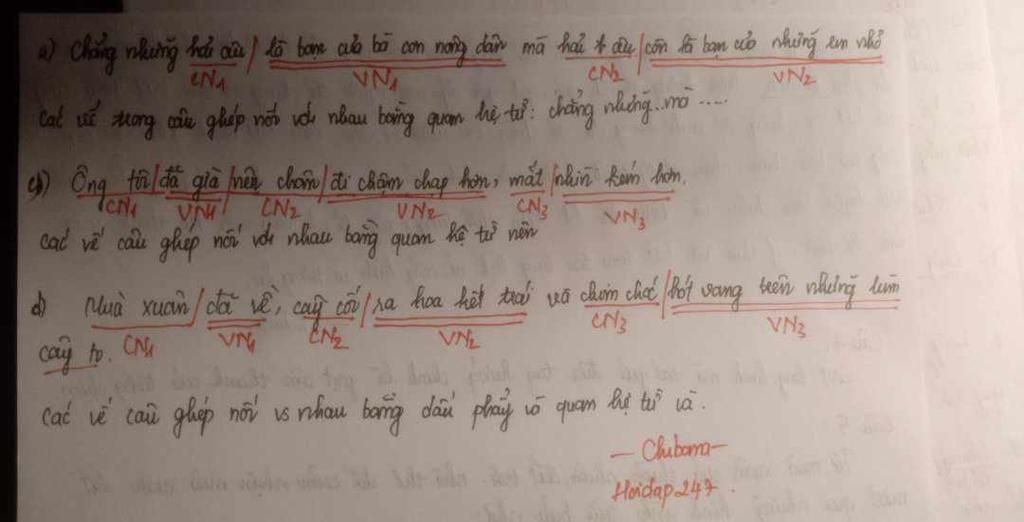 a) Chẳng những hải âu / là bạn của bà con nông dân mà hải âu / còn là bạn của những em nhỏ
CN1 VN1 CN2 VN2
Các vế trong câu ghép nối với nhau bằng quan hệ từ: chẳng những...mà ....
c) Ông tôi / đã già / nên chân / đi chậm chạp hơn, mắt / nhìn kém hơn.
CN1 VN1 CN2 VN2 CN3 VN3
các vế câu ghép nối với nhau bằng quan hệ từ nên
d) Mùa xuân / đã về, cây cối / ra hoa kết trái và chim chóc / hót vang trên những lùm
CN1 VN1 CN2 VN2 CN3 VN3
cây to.
các vế câu ghép nối vs nhau bằng dấu phẩy và quan hệ từ và.
— Chibama —
Hoidap247.